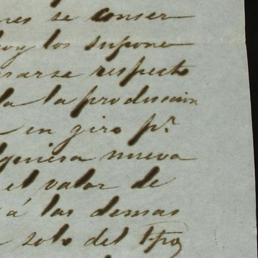 nes se conser
hoy los supone
rarse respecto
la la produccion
en giro pr.
lquiera nueva
el valor de
á las demas
solo del tpo